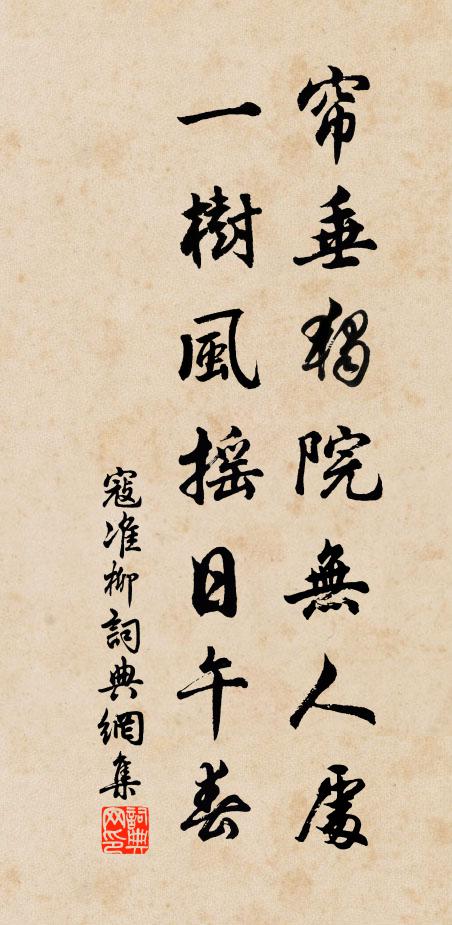 帘垂獨院無人處
一樹風摇日午春
寇准柳詞典網集
詞典網印